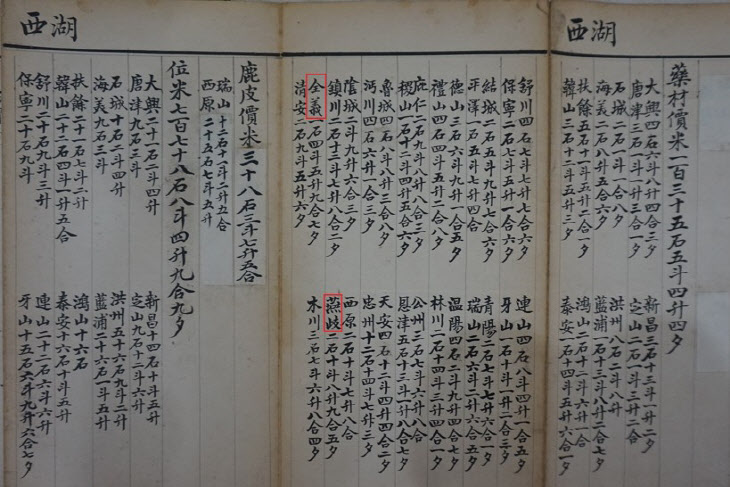 湖西
藥材價米一百三十五石五斗四升四夕
大興四石六斗八升四合三夕 新昌三石十三斗一升二夕
唐津三石一斗三升三合 定山二石一斗三升二合
石城一石一斗一合八夕 洪州八石二斗八升
海美二石八升五合六夕 藍浦一石十三斗八升二合七夕
扶餘五石十斗五升二合一夕 鴻山二石十四斗一合
韓山三石十二斗五升三夕 泰安一石十四斗六升一合一夕
舒川四石七斗七升七合六夕 連山四石八斗四升一合五夕
保寧二石一斗五升一合六夕 牙山一石十斗一升二合三夕
結城二石五斗九升七合六夕 青陽二石七斗七升六合一夕
平澤一石五斗五升七夕四合 瑞山二石二斗六升六合五夕
德山三石六斗九升一合五夕 溫陽四石二斗九升四合七夕
禮山四石四斗五升二合 林川二石十四斗三升一合
庇仁二石九斗八升八合三夕 公州三石七斗六升八合
稷山一石十二斗四升五合六夕 恩津五石十三斗一升八合七夕
魯城四石八斗八升二合三夕 天安四石十二斗四升四合二夕
沔川四石六升一合三夕 忠州十二石十四斗七升三夕
陰城二斗九升六合三夕 西原二石十斗七升八合
鎮川二石十三斗七升八合二夕 燕岐二石十斗八升九合五夕
全義一石四斗五升九合七夕 木川三石七斗六升八合四夕
清安二石九斗五升六夕
湖西
鹿皮價米三十八石三斗七升五合
瑞山十二石十一斗二升五合
西原二十五石七斗五升
位米七百七十八石八斗四升九合九夕
大興二十一石二斗四升 新昌十四石十斗五升
唐津十石九斗三升 定山九石十二斗六升
石城十石二斗四升 洪州五十六石九斗二升
海美九石三斗 藍浦二十六石一斗五升
扶餘二十石七斗二升 鴻山十六石
韓山二十二石四斗一升五合 泰安十六石十斗五升
舒川二十石九斗三升 連山二十二石二斗六升
保寧二十石九斗 牙山十五石六斗九升六合七夕